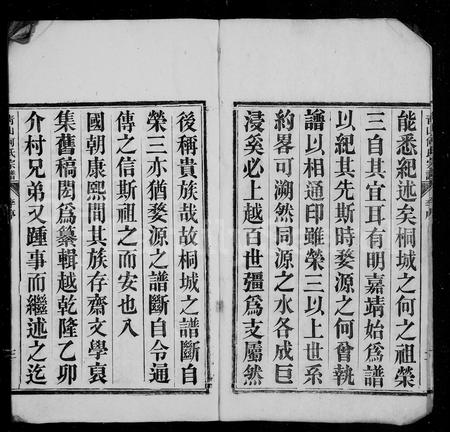 能悉紀述矣桐城之何之祖榮
三自其宜耳有明嘉靖始爲譜
以紀其先斯時婺源之何曾執
譜以相通印雖榮三以上世系
約畧可溯然同源之水各成巨
浸奚必上越百世彊爲支屬然
後稱貴族哉故桐城之譜斷自
榮三亦猶婺源之譜斷自令通
傳之信斯祖之而安也入
國朝康熙間其族存齋文學裒
集舊稿閎爲纂輯越乾隆乙卯
介村兄弟又踵事而繼述之迄
青山何氏宗譜